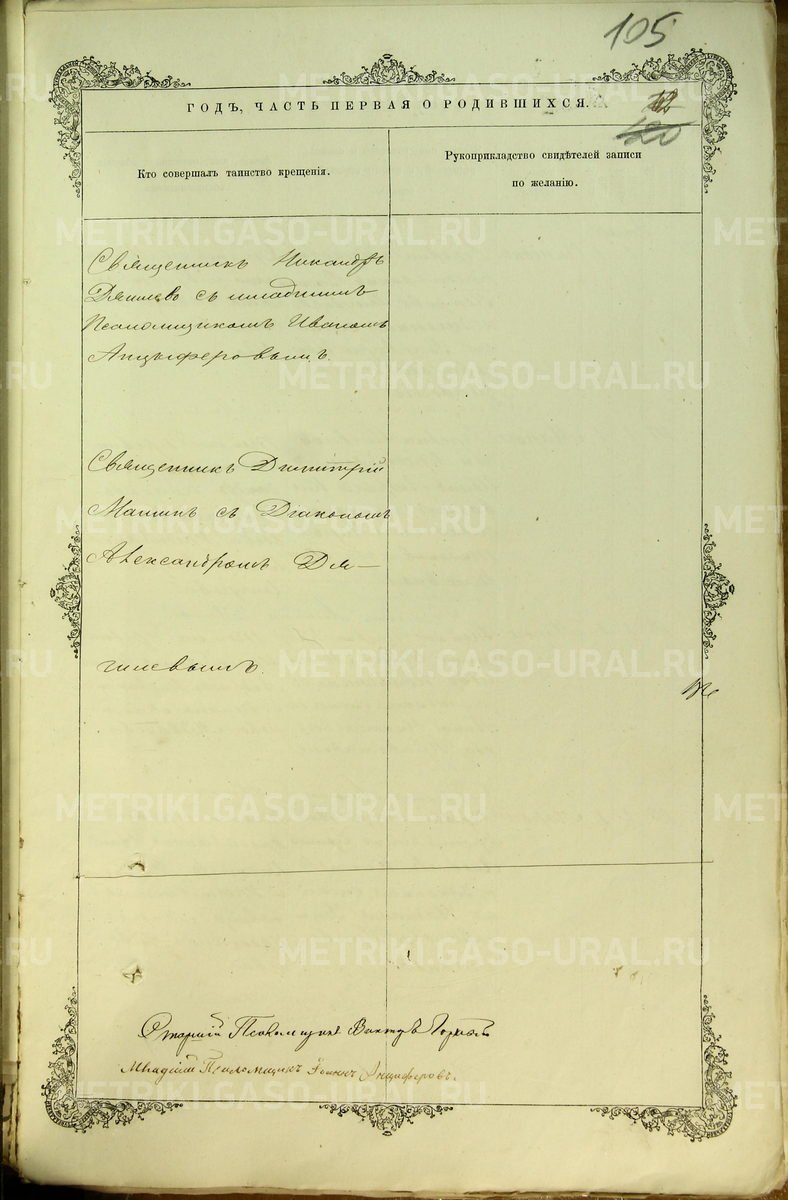 105
ГОДЪ, ЧАСТЬ ПЕРВАЯ О РОДИВШИХСЯ.
12
120
Кто совершалъ таинство крещенія.
Рукоприкладство свидѣтелей записи
по желанію.
Священникъ Никандръ
съ младшимъ
Псаломщикомъ Иваномъ
Анцыферовымъ.
Священникъ Димитрій
съ Діакономъ
Александромъ
Старшій Псаломщикъ Викторъ
Младшій Псаломщикъ Іоаннъ Анциферовъ.
METRIKI.GASO-URAL.RU